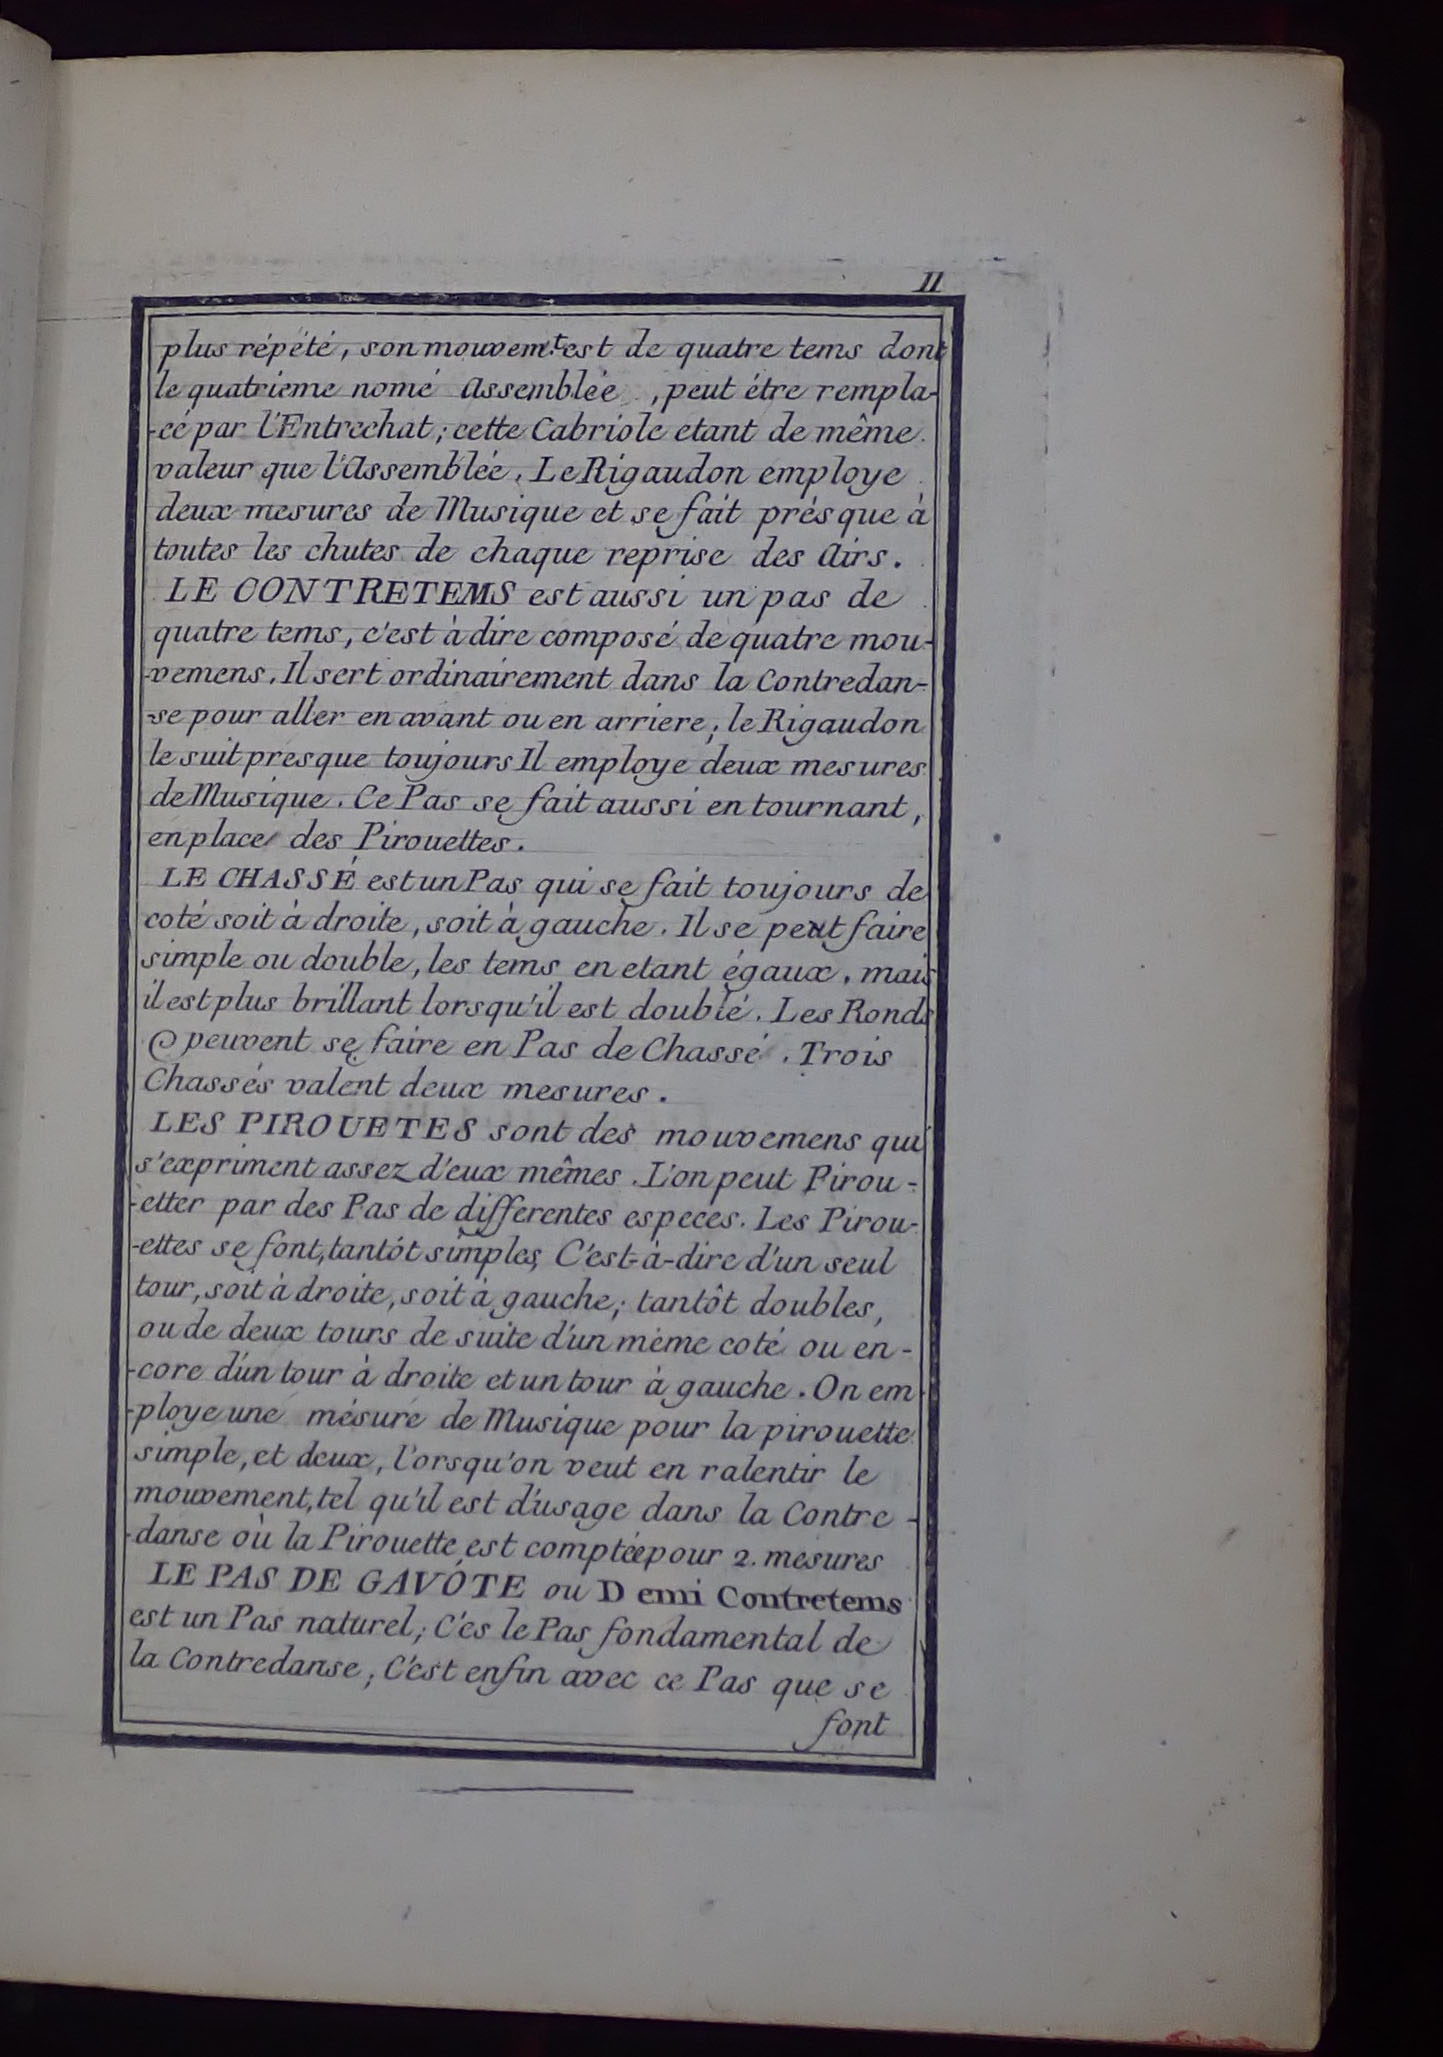 11
plus répété, son mouvem.t est de quatre tems dont
le quatrieme nomé Assemblée, peut étre rempla-
-cé par l'Entrechat; cette Cabriole etant de même
valeur que l'Assemblée. Le Rigaudon employe
deux mesures de Musique et se fait présque à
toutes les chutes de chaque reprise des Airs.
LE CONTRETEMS est aussi un pas de
quatre tems, c'est à dire composé de quatre mou-
-vemens. Il sert ordinairement dans la Contredan-
-se pour aller en avant ou en arriere; le Rigaudon
le suit presque toujours Il employe deux mesures
de Musique. Ce Pas se fait aussi en tournant,
en place des Pirouettes.
LE CHASSÉ est un Pas qui se fait toujours de
coté soit à droite, soit à gauche. Il se peut faire
simple ou double, les tems en etant égaux, mais
il est plus brillant lorsqu'il est doublé. Les Ronds
peuvent se faire en Pas de Chassé. Trois
Chassés valent deux mesures.
LES PIROUETES sont des mouvemens qui
s'expriment assez d'eux mêmes. L'on peut Pirou-
-etter par des Pas de differentes especes. Les Pirou-
-ettes se font, tantôt simples, C'est-à-dire d'un seul
tour, soit à droite, soit à gauche; tantôt doubles,
ou de deux tours de suite d'un même coté ou en-
-core d'un tour à droite et un tour à gauche. On em
-ploye une mésure de Musique pour la pirouette
simple, et deux, l'orsqu'on veut en ralentir le
mouvement, tel qu'il est d'usage dans la Contre-
-danse où la Pirouette est comptée pour 2. mesures
LE PAS DE GAVÔTE ou Demi Contretems
est un Pas naturel; C'es le Pas fondamental de
la Contredanse; C'est enfin avec ce Pas que se
font